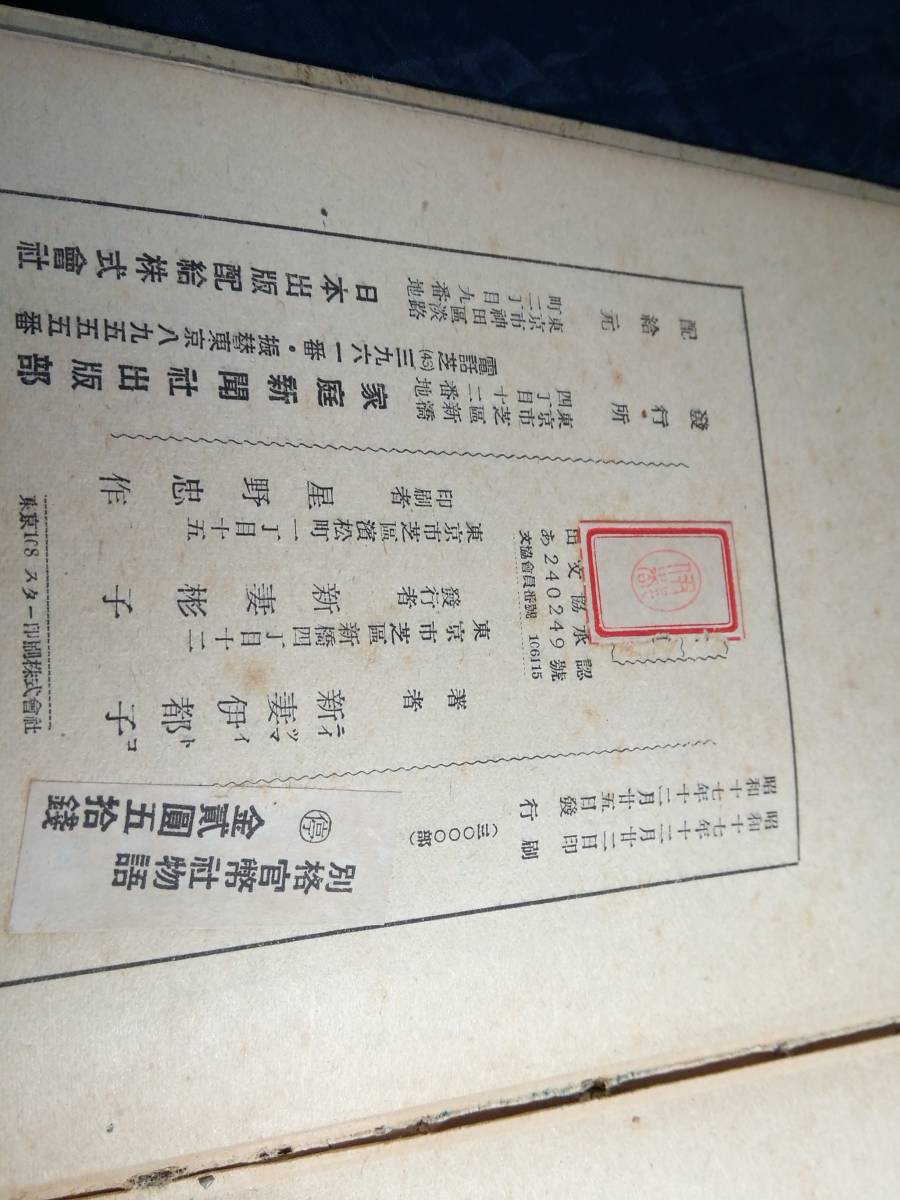 昭和十七年十二月廿二日印刷
昭和十七年十二月廿五日發行
(三〇〇〇部)
別格官幣社物語
停 金貳圓五拾錢
著者 新妻伊都子
ニィ ヅマ イ ト コ
東京市芝區新橋四丁目十二
發行者 新妻彬子
東京市芝區濱松町一丁目十五
印刷者 星野忠作
東京108 スター印刷株式會社
文協承認
あ240249號
文協會員番號 106115
發行所
東京市芝區新橋
四丁目十二番地
家庭新聞社出版部
電話芝(43)三九六一番・振替東京八九五五五番
配給元
東京市神田區淡路
町二丁目九番地
日本出版配給株式會社